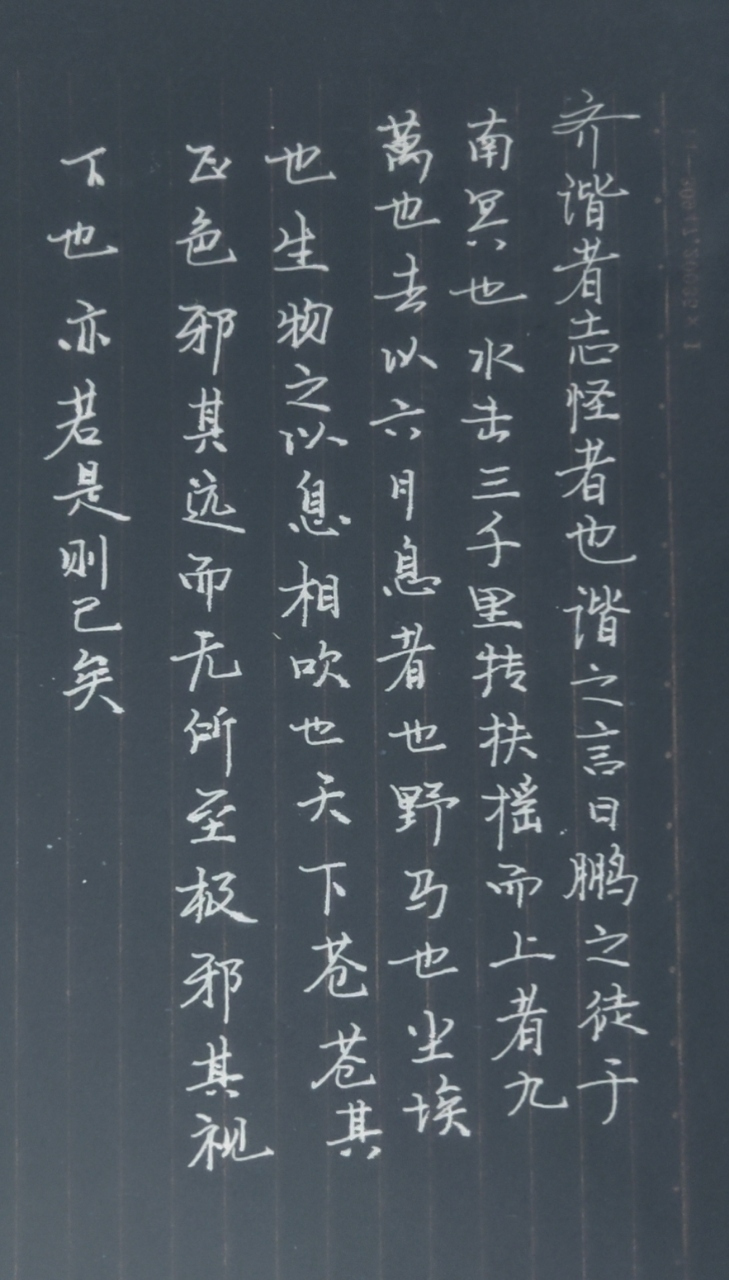 齐谐者志怪者也谐之言曰鹏之徒于
南冥也水击三千里抟扶摇而上者九
萬也去以六月息者也野马也尘埃
也生物之以息相吹也天下苍苍其
正色邪其远而无所至极邪其视
下也亦若是则已矣